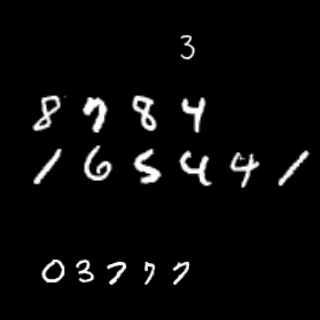 3
8784
165441
03777